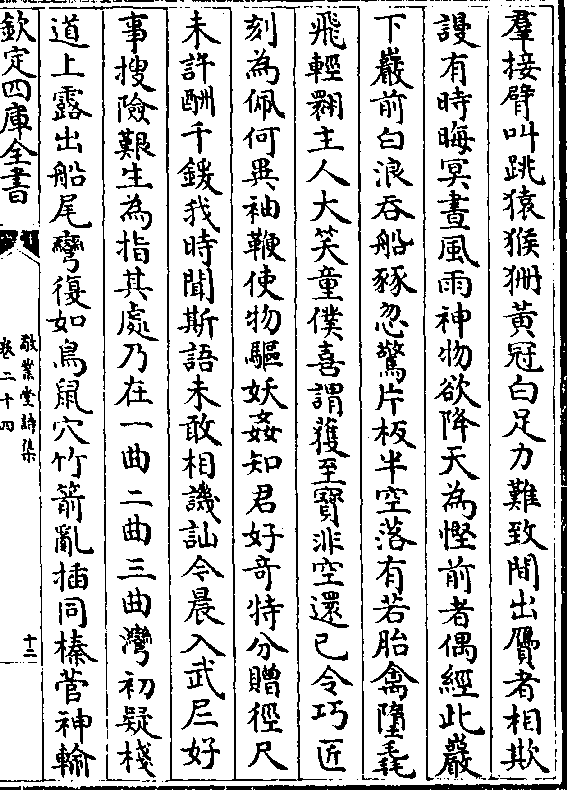 羣接臂叫跳猿猴狦黄冠白足力難致間出贋者相欺
謾有時晦冥晝風雨神物欲降天為慳前者偶經此巖
下巖前白浪吞船豗忽驚片板半空落有若胎禽墮毳
飛輕翾主人大笑童僕喜謂獲至寶非空還已令巧匠
刻為佩何異袖鞭使物驅妖姦知君好竒特分贈徑尺
未許酬千鍰我時聞斯語未敢相譏訕令晨入武𡰥好
事搜險艱生為指其處乃在一曲二曲三曲灣初疑棧
道上露出船尾彎復如鳥鼠穴竹箭亂插同榛菅神輸
欽定四庫全書
敬業堂詩集
卷二十四
十三